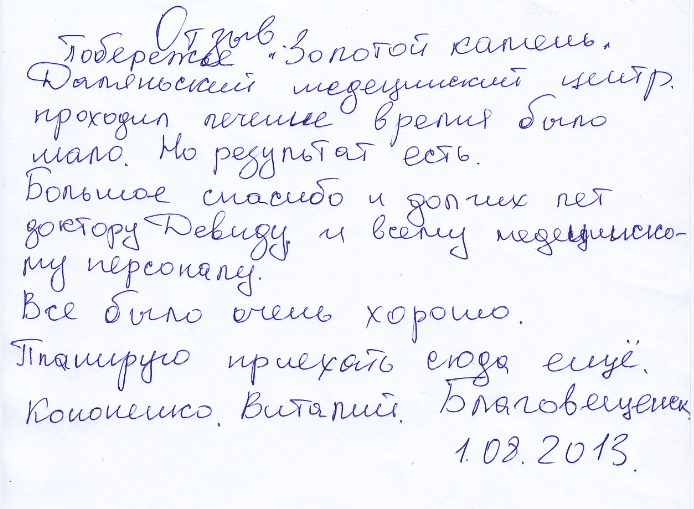 Отзыв.
Побережье "Золотой камень".
Даляньский медецинский центр.
проходил лечение время было
мало. Но результат есть.
Большое спасибо и долгих лет
доктору Девиду, и всему медецинско-
му персоналу.
Все было очень хорошо.
Планирую приехать сюда ещё.
Кононенко. Виталий. Благовещенск.
1.08.2013.